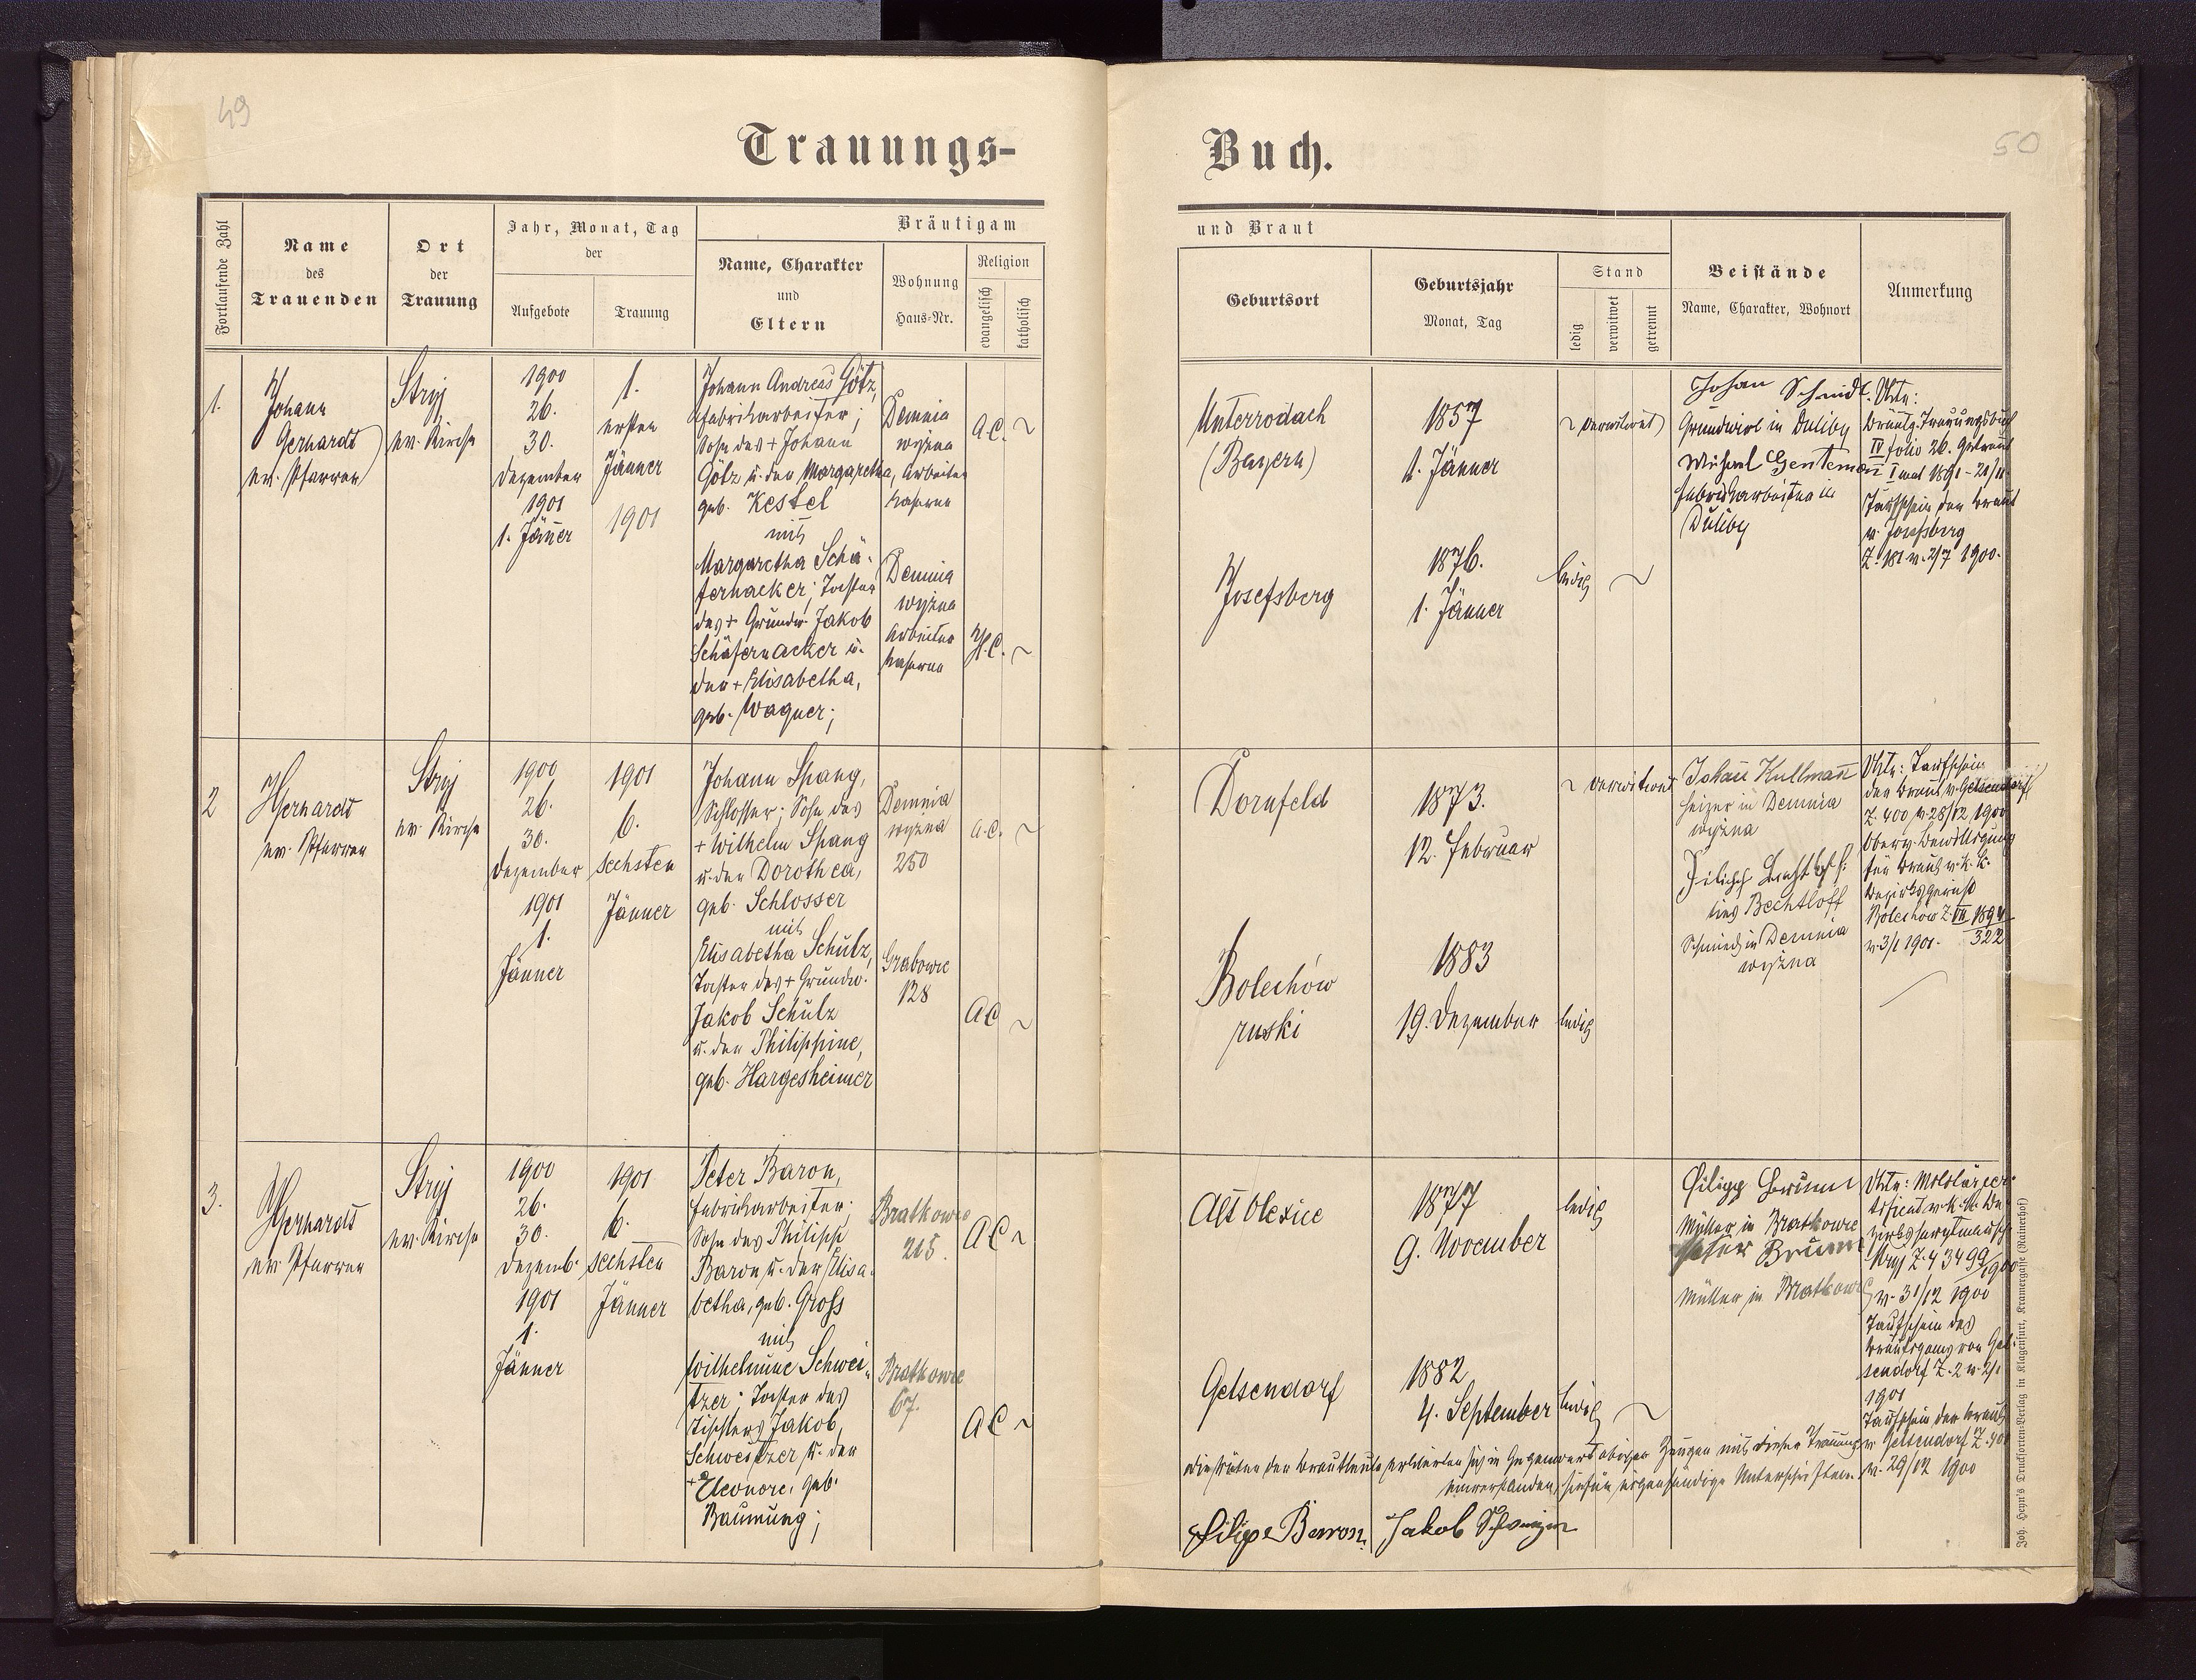 49
Trauungs-
Fortlaufende Zahl
Name
des
Trauenden
Ort
der
Trauung
Jahr, Monat, Tag
der
Aufgebote
Trauung
Bräutigam
Name, Charakter
und
Eltern
Wohnung
Haus-Nr.
Religion
evangelisch
katholisch
1.
Johann
Gerhardt
ev. Pfarrer
Stryj
ev. Kirche
1900
26.
30.
Dezember
1901
1. Jänner
1.
ersten
Jänner
1901
Johann Andreas Götz,
Fabriksarbeiter;
Sohn des + Johann
Götz u. der Margaretha,
geb. Kestel
mit
Margaretha Schä-
fernacker; Tochter
des + Grundw. Jakob
Schäfernacker u.
der + Elisabetha,
geb. Wagner;
Demnia
wyżna
Arbeiter
kaserne
A.C.
Demnia
wyżna
Arbeiter
kaserne
H.C.
2
J Gerhardt
ev. Pfarrer
Stryj
ev. Kirche
1900
26.
30.
Dezember
1901
1.
Jänner
1901
6.
sechsten
Jänner
Johann Spang,
Schlosser; Sohn des
+ Wilhelm Spang
u. der Dorothea,
geb. Schlosser
mit
Elisabetha Schulz,
Tochter des + Grundw.
Jakob Schulz
u. der Philippine,
geb. Hargesheimer
Demnia
wyżna
250
A.C.
Grabowie
128
A C
3.
J Gerhardt
ev. Pfarrer
Stryj
ev. Kirche
1900
26.
30.
Dezemb.
1901
1.
Jänner
1901
6.
sechsten
Jänner
Peter Baron,
Fabriksarbeiter;
Sohn des Philipp
Baron u. der Elisa-
betha, geb. Groß
mit
Wilhelmine Schwei-
tzer; Tochter des
Tischlers Jakob
Schweitzer u. der
+ Eleonore, geb.
Baumung;
Bratkowce
215.
A C
Bratkowce
67.
A C
50
Buch.
und Braut
Geburtsort
Geburtsjahr
Monat, Tag
Stand
ledig
verwitwet
getrennt
Beistände
Name, Charakter, Wohnort
Anmerkung
Unterrodach
(Bayern)
1857
1. Jänner
verwitwet
Josefsberg
1876.
1. Jänner
ledig
Johan Schmidt
Grundwirt in Duliby
Michael Gentemann
Fabriksarbeiter in
Duliby
Urk:
Bräutig. Trauungsbuch
IV folio 26. Getraut
I mal 1891 - 21/11.
Taufschein der Braut
v. Josefsberg
Z. 181 v. 2/7 1900.
Dornfeld
1873.
12. Februar
verwitwet
Bolechów
ruski
1883
19. Dezember
ledig
Johann Kullmann
Heizer in Demnia
wyżna
Bechtloff
Schmied in Demnia
wyżna
Urk: Taufschein
der Braut v. Gelsendorf
Z. 400 v. 28/12 1900
Oberv. Bewilligung
für Braut v. k. k.
Bezirksgericht
Bolechów Z. VII 1894
322
v. 3/1 1901.
Alt Olexice
1877
9. November
ledig
Gelsendorf
1882
4. September
ledig
Filipp Brumm
Müller in Bratkowce
Brumm
Müller in Bratkowce
Urk: Militärzer-
tifikat v. k. k. Be-
zirkshauptmannsch.
Stryj Z. 43499/1900
v. 31/12 1900
Taufschein des
Bräutigams von Gel-
sendorf Z. 2 v. 2/1
1901
Taufschein der Braut
v. Gelsendorf Z. 400
v. 29/12 1900
Die Väter der Brautleute erklärten sich in Gegenwart obiger Zeugen mit dieser Trauung
einverstanden, hiefür eigenhändige Unterschriften.
Filipp Barron. Jakob Schweizer
Joh. Heyn's Drucksorten-Verlag in Klagenfurt, Kramergasse (Rainerhof)